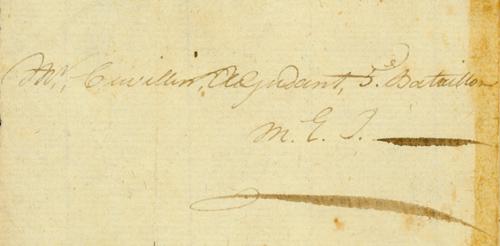 Mr. Cuvillier, Adjudant, 5.e Bataillon
M. E. I.